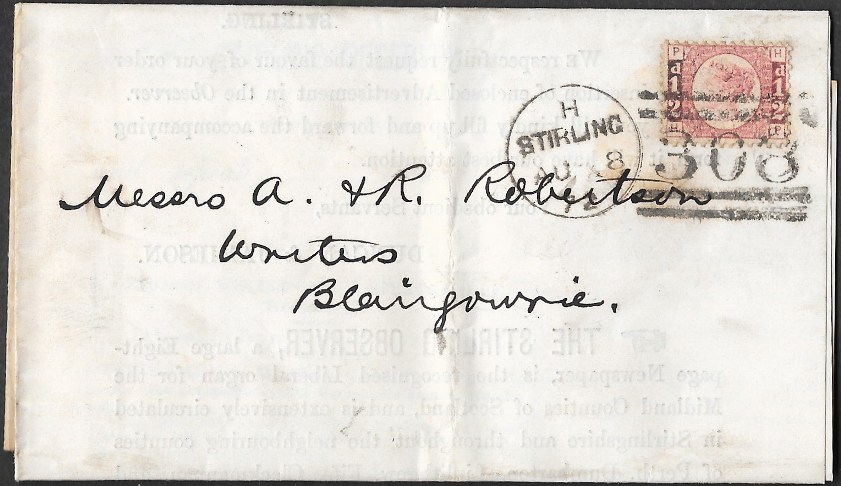 STIRLING.
WE respectfully request the favour of your order
insertion of enclosed Advertisement in the Observer.
kindly fill up and forward the accompanying
have our best attention.
our obedient Servants,
P H
d d
1 1
2 2
H P
H
STIRLING
AU 8
308
Messrs A. & R. Robertson
Writers
Blairgowrie.
THE STIRLING OBSERVER, a large Eight-
page Newspaper, is the recognised Liberal organ for the
Midland Counties of Scotland, and is extensively circulated
in Stirlingshire and throughout the neighbouring counties
of Perth,